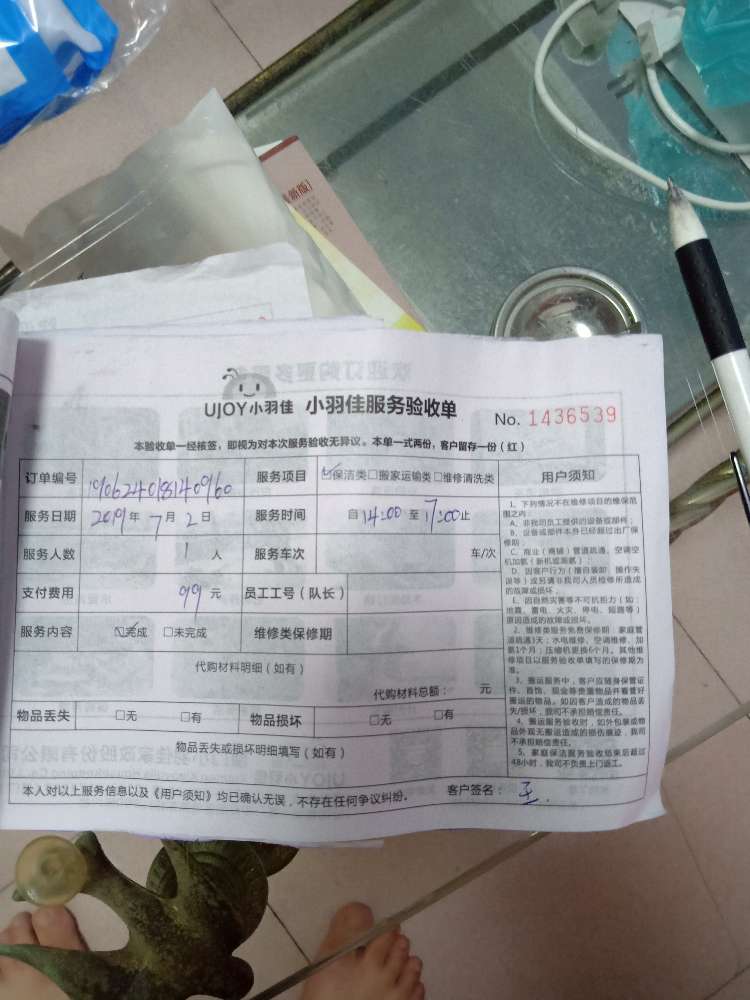 新版]
欢迎订购更多服务
UJOY小羽佳 小羽佳服务验收单
No. 1436539
本验收单一经核签，即视为对本次服务验收无异议。本单一式两份，客户留存一份（红）
订单编号 190624018140960 服务项目 ☑保洁类□搬家运输类□维修清洗类 用户须知
服务日期 2019年 7月 2日 服务时间 自 14:00 至 17:00 止
服务人数 1 人 服务车次 车/次
支付费用 99 元 员工工号（队长）
服务内容 ☑完成 □未完成 维修类保修期
代购材料明细（如有）
代购材料总额： 元
物品丢失 □无 □有 物品损坏 □无 □有
物品丢失或损坏明细填写（如有）
1、下列情况不在维修项目的维保范
围之内：
A、非我司员工提供的设备或部件；
B、设备或部件本身已经超过出厂保
修期；
C、商业（商铺）管道疏通，空调空
机加氨（新机或漏氨）；
D、因客户行为（擅自装卸、操作失
误等）或另请非我司人员检修所造成
的故障或损坏；
E、因自然灾害等不可抗拒力（如：
地震、雷电、火灾、停电、短路等）
原因造成的故障或损坏。
2、维修类服务免费保修期：家庭管
道疏通3天；水电维修、空调维修、加
氨1个月；压缩机更换6个月。其他维
修项目以服务验收单填写的保修期为
准。
3、搬运服务中，客户应随身保管证
件、首饰、现金等贵重物品并看管好
搬运的物品。如因客户造成的物品丢
失/损坏，我司不承担赔偿责任。
4、搬运服务验收时，如外包装或物
品外观无搬运造成的损伤痕迹，我司
不承担赔偿责任。
5、家庭保洁服务验收结束后超过
48小时，我司不负责上门返工。
本人对以上服务信息以及《用户须知》均已确认无误，不存在任何争议纠纷。 客户签名： 王